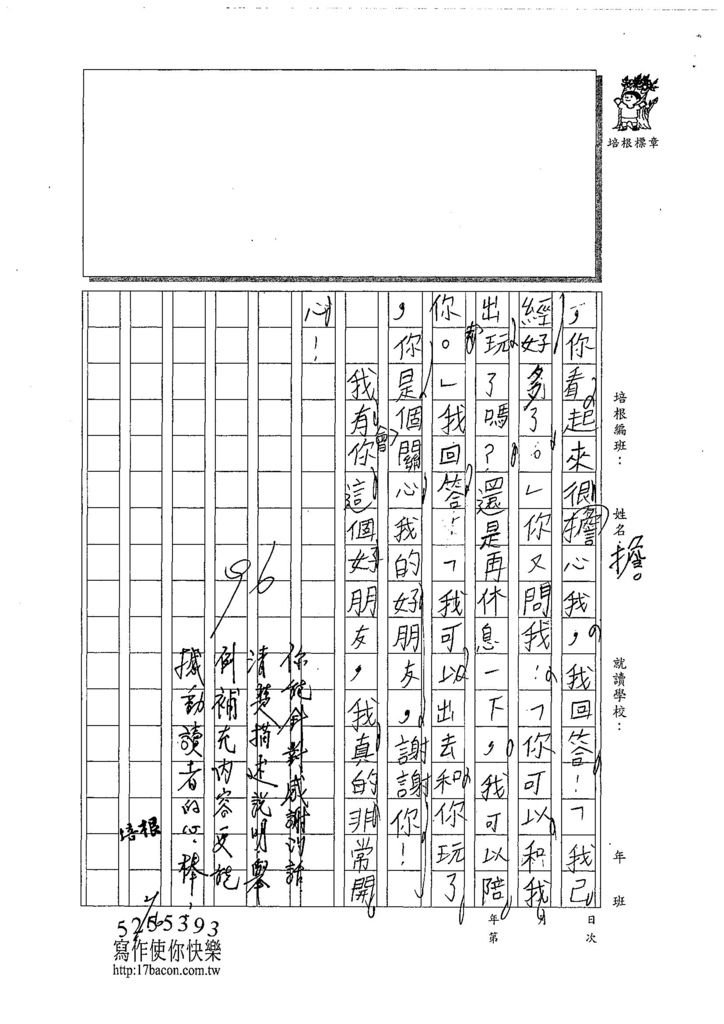 培根標章
培根編班：
姓名：
擔。
就讀學校：
年 班
年 月 日
第 次
，你看起來很擔心我，我回答：「我已
經好多了。」你又問我：「你可以和我
出玩了嗎？還是再休息一下，我可以陪
你。」我回答：「我可以出去和你玩了
，你是個關心我的好朋友，謝謝你！
會
我有你這個好朋友，我真的非常開
心！
96
你能針對感謝的話
清楚描述說明舉
例補充內容更能
撼動讀者的心，棒！
培根
5255393
寫作使你快樂
http:17bacon.com.tw